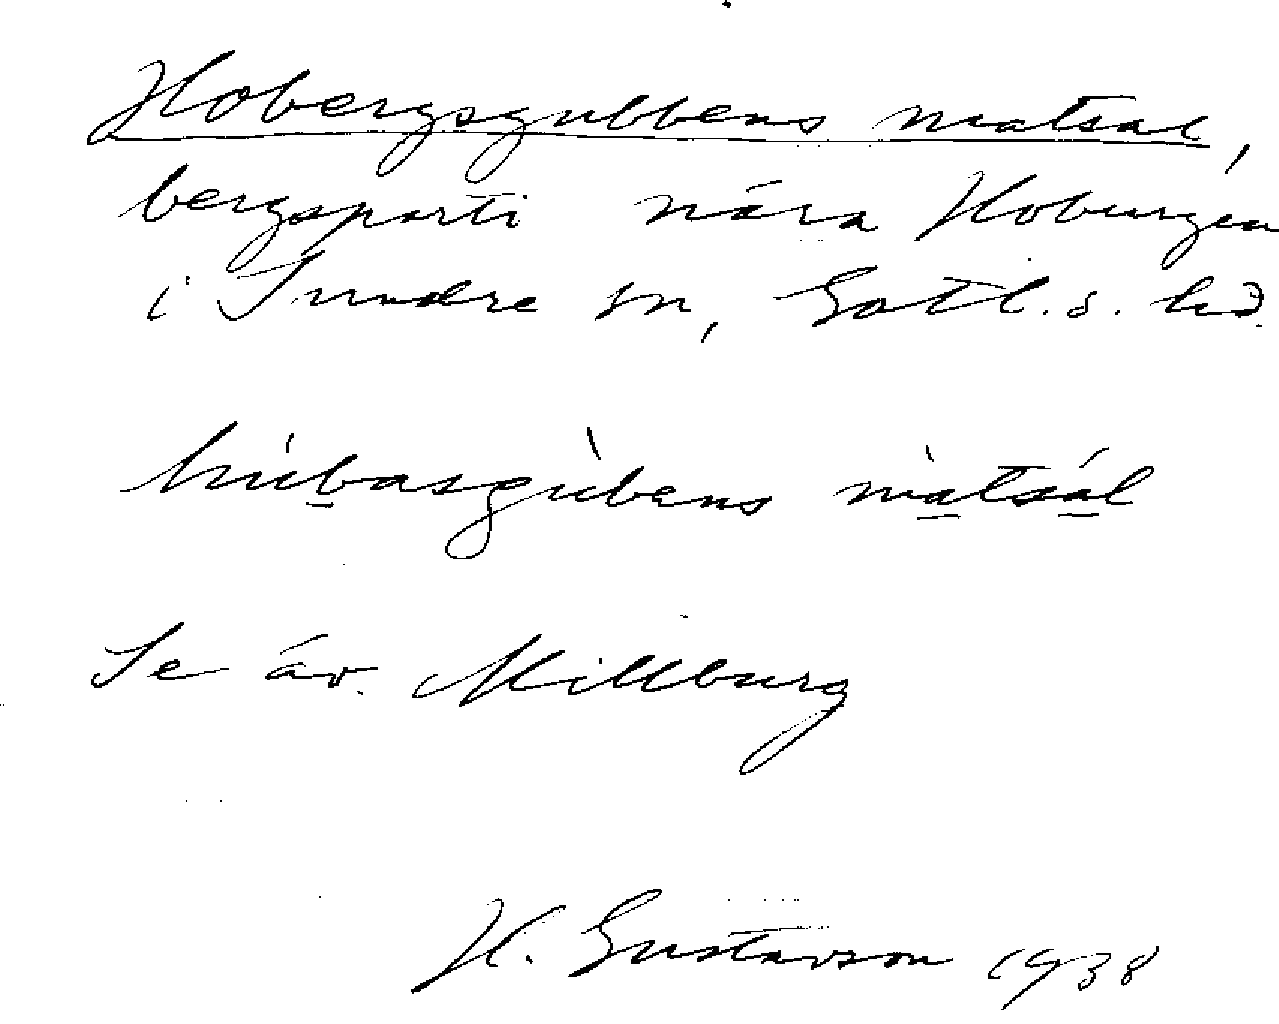 Hobergsgubbens matsal,
bergsparti nära Hoburgen
i Sundre sn, Gotl. s. hd.
húbasgùbens màtsál
Se äv. Millburg
H. Gustavson 1938